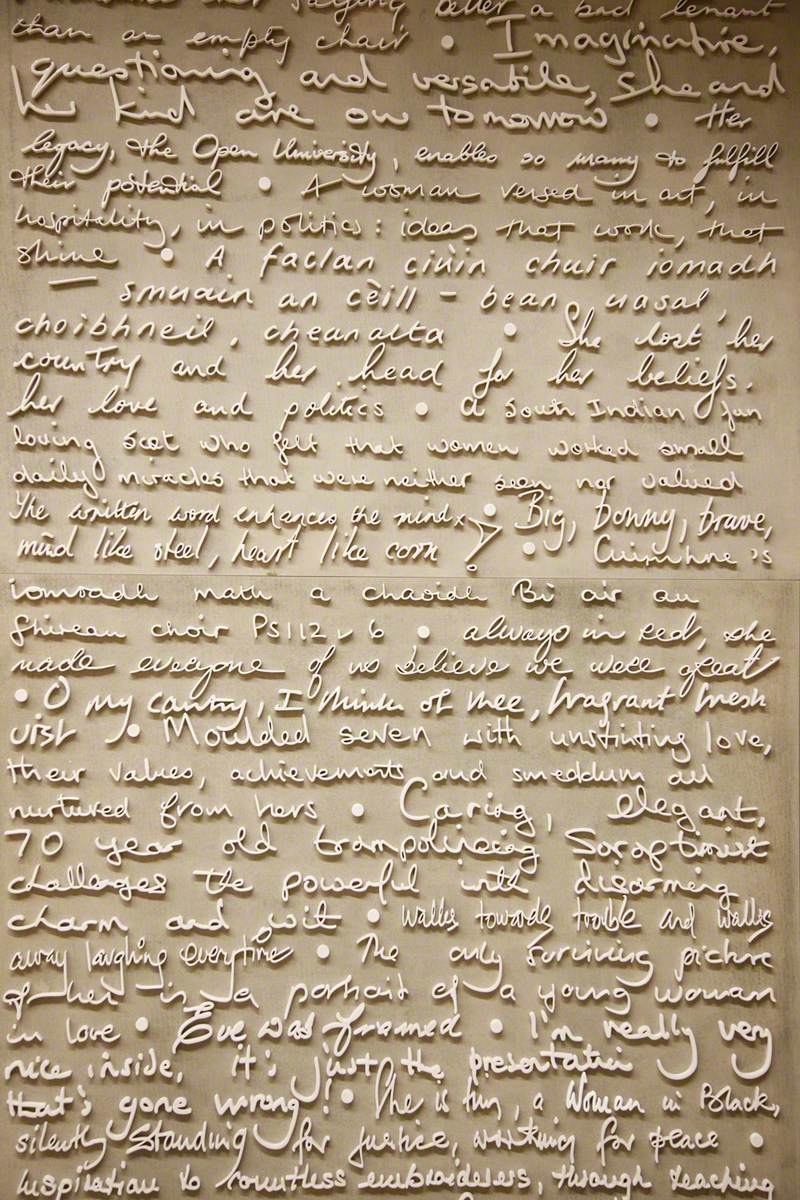 her saying better a bad tenant
than an empty chair • Imaginative,
questioning and versatile, she and
her kind are our tomorrow • Her
legacy, the Open University, enables so many to fulfill
their potential • A woman versed in art, in
hospitality, in politics: ideas that work, that
shine • A faclan ciùin chuir iomadh
— smuain an cèill - bean uasal,
choibhneil, cheanalta • She lost her
country and her head for her beliefs,
her love and politics • A South Indian fun
loving Scot who felt that women worked small
daily miracles that were neither seen nor valued
The written word enhances the mind • Big, bonny, brave,
mind like steel, heart like corn • Cuimhne 's
iomradh math a chaoidh Bi air an
fhirean choir Ps 112 v 6 • always in red, she
made everyone of us believe we were great
• O my cantry, I think of thee, fragrant fresh
Uist • Moulded seven with unstinting love,
their values, achievements and smeddum all
nurtured from hers • Caring, elegant,
70 year old trampolining Soroptimist
challenges the powerful with disarming
charm and wit • Walks towards trouble and walks
away laughing everytime • The only surviving picture
of her is a portrait of a young woman
in love • Eve was framed • I'm really very
nice inside, it's just the presentation
that's gone wrong! • She is tiny, a Woman in Black,
silently standing for justice, working for peace •
Inspiration to countless embroiderers, through teaching